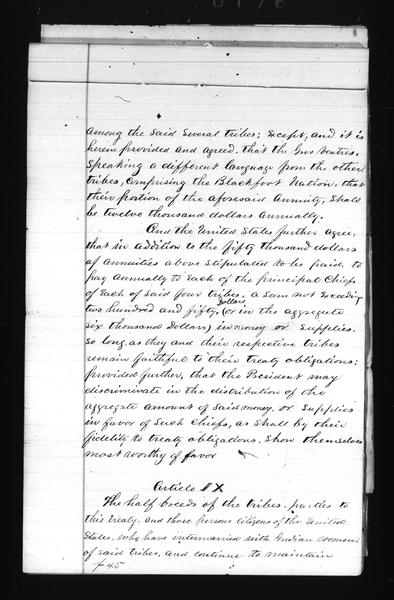 among the said several tribes; except, and it is
herein provided and agreed, that the Gros Ventres,
speaking a different language from the other
tribes, comprising the Blackfoot Nation, that
their portion of the aforesaid Annuity, shall
be twelve thousand dollars annually.
And the United States further agree,
that in addition to the fifty thousand dollars
of Annuities above stipulated to be paid, to
pay annually to each of the principal Chiefs
of each of said four tribes, a sum not exceeding
two hundred and fifty dollars, (or in the aggregate
six thousand dollars) in money or supplies.
so long, as they and their respective tribes
remain faithful to their treaty obligations;
provided further, that the President may
discriminate in the distribution of the
aggregate amount of said money, or supplies
in favor of such chiefs, as shall by their
fidelity to treaty obligations, show themselves
most worthy of favor
Article IX
The half breeds of the tribes, parties to
this treaty, and those persons citizens of the United
States, who have intermarried with Indian women
of said tribes, and continue to maintain